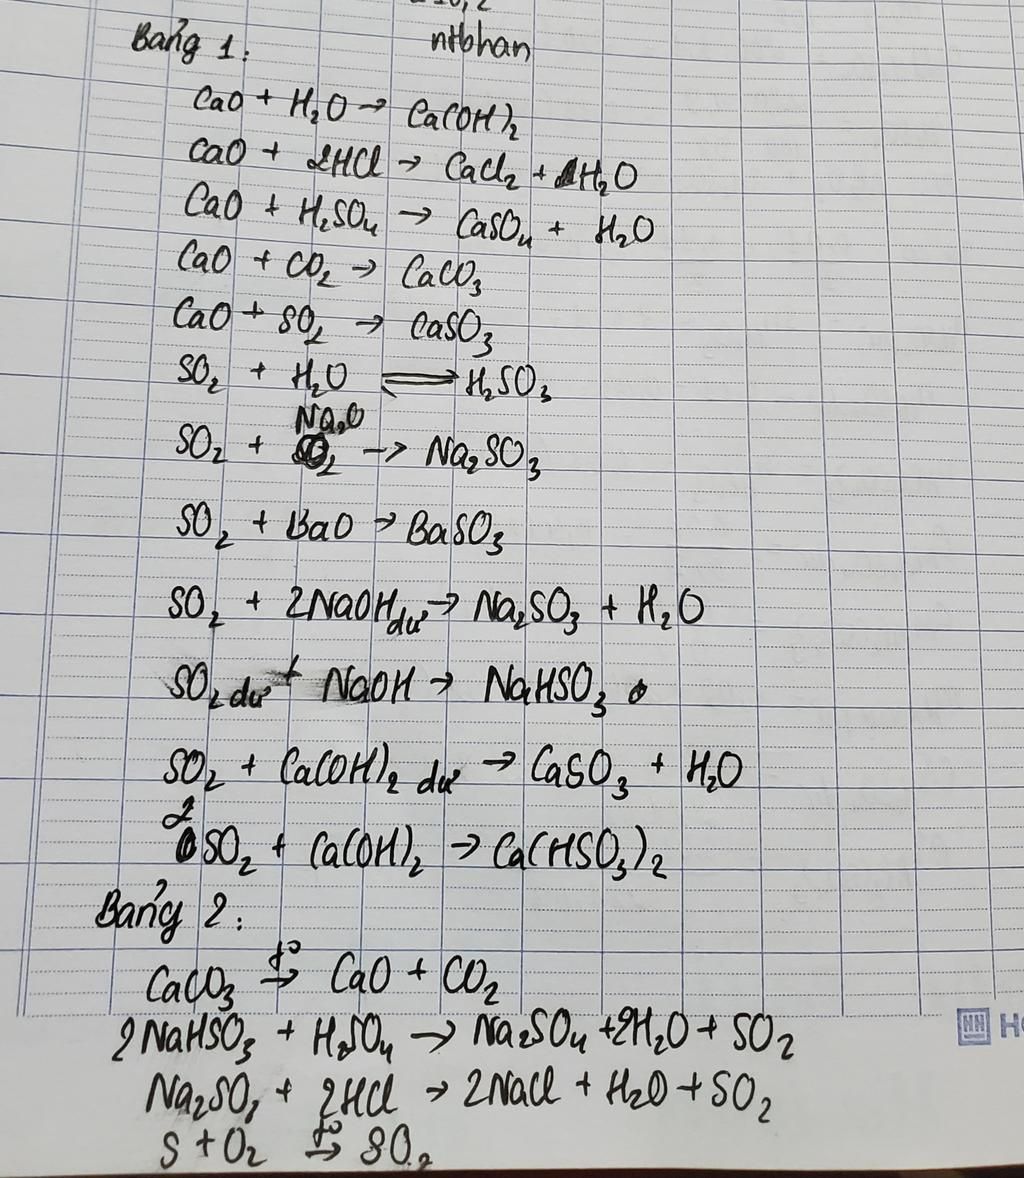 nHbhan
Bảng 1:
CaO + H₂O → Ca(OH)₂
CaO + 2HCl → CaCl₂ + H₂O
CaO + H₂SO₄ → CaSO₄ + H₂O
CaO + CO₂ → CaCO₃
CaO + SO₂ → CaSO₃
SO₂ + H₂O ⇌ H₂SO₃
SO₂ + Na₂O → Na₂SO₃
SO₂ + BaO → BaSO₃
SO₂ + 2NaOH dư → Na₂SO₃ + H₂O
SO₂ dư + NaOH → NaHSO₃
SO₂ + Ca(OH)₂ dư → CaSO₃ + H₂O
2SO₂ + Ca(OH)₂ → Ca(HSO₃)₂
Bảng 2:
CaCO₃ t°→ CaO + CO₂
2NaHSO₃ + H₂SO₄ → Na₂SO₄ + 2H₂O + SO₂
Na₂SO₃ + 2HCl → 2NaCl + H₂O + SO₂
S + O₂ t°→ SO₂